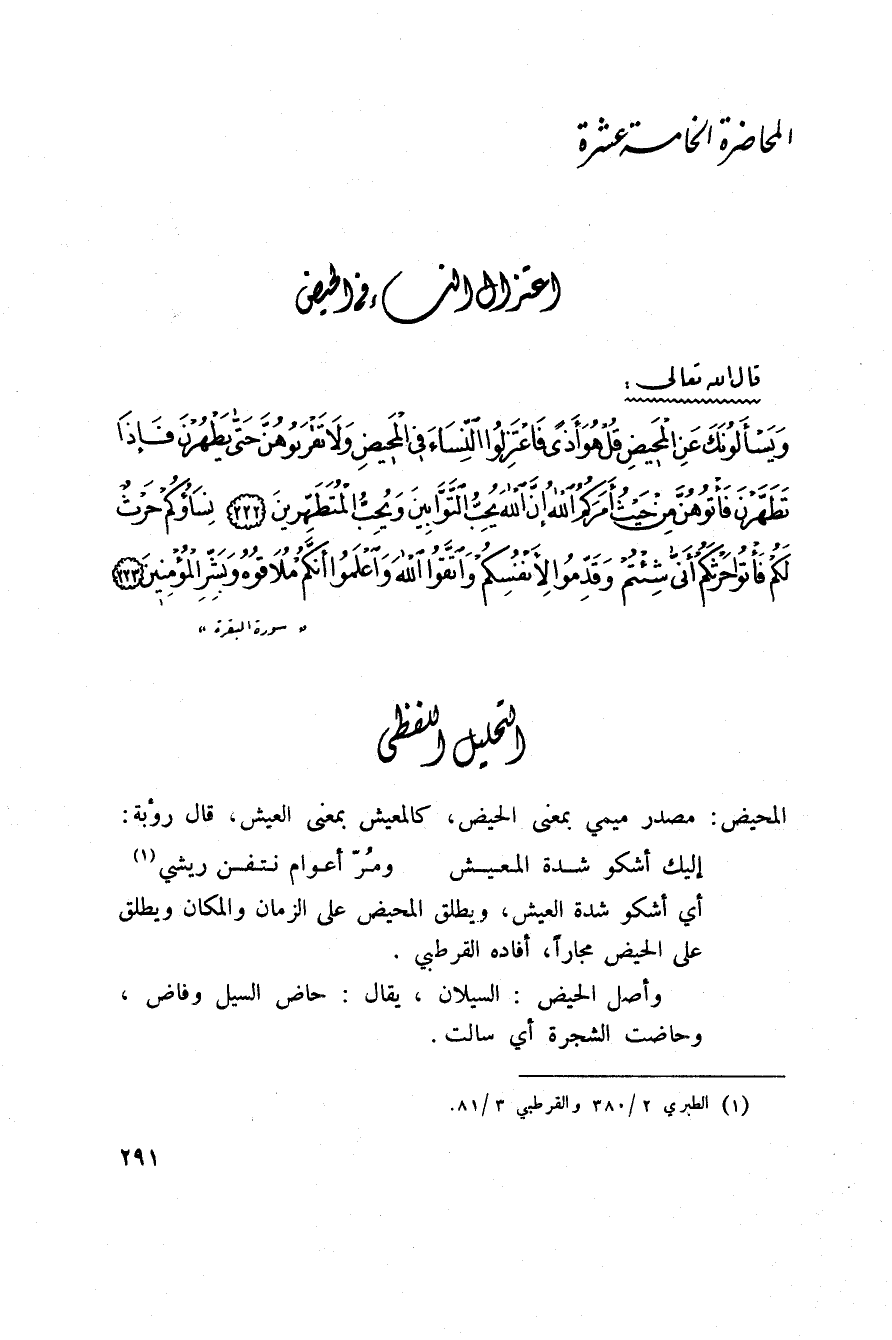 المحاضرة الخامسة عشرة
اعتزال النساء في الحيض
قال الله تعالى :
وَيَسْأَلُونَكَ عَنِ الْمَحِيضِ قُلْ هُوَ أَذًى فَاعْتَزِلُوا النِّسَاءَ فِي الْمَحِيضِ وَلَا تَقْرَبُوهُنَّ حَتَّىٰ يَطْهُرْنَ فَإِذَا
تَطَهَّرْنَ فَأْتُوهُنَّ مِنْ حَيْثُ أَمَرَكُمُ اللَّهُ إِنَّ اللَّهَ يُحِبُّ التَّوَّابِينَ وَيُحِبُّ الْمُتَطَهِّرِينَ ﴿٢٢٢﴾ نِسَاؤُكُمْ حَرْثٌ
لَكُمْ فَأْتُوا حَرْثَكُمْ أَنَّىٰ شِئْتُمْ وَقَدِّمُوا لِأَنْفُسِكُمْ وَاتَّقُوا اللَّهَ وَاعْلَمُوا أَنَّكُمْ مُلَاقُوهُ وَبَشِّرِ الْمُؤْمِنِينَ ﴿٢٢٣﴾
« سورة البقرة »
التحليل اللفظي
المحيض: مصدر ميمي بمعنى الحيض، كالمعيش بمعنى العيش، قال رؤبة:
إليك أشكو شـدة المـعيـش ومُرّ أعـوام نتـفـن ريشي (١)
أي أشكو شدة العيش، ويطلق المحيض على الزمان والمكان ويطلق
على الحيض مجازاً، أفاده القرطبي .
وأصل الحيض : السيلان ، يقال : حاض السيل وفاض ،
وحاضت الشجرة أي سالت .
(١) الطبري ٢/ ٣٨٠ والقرطبي ٣/ ٨١.
٢٩١